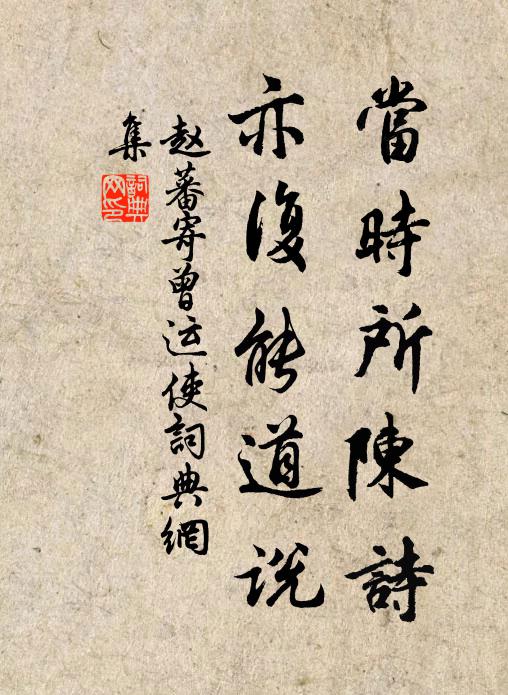 當時所陳詩
亦復能道说
赵蕃寄曾运使詞典網
集
詞典
网印